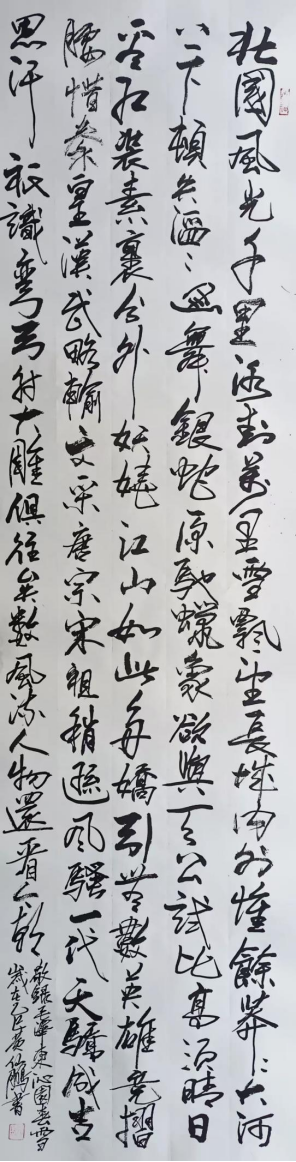 北國風光千里冰封萬里雪飄望長城内外惟餘莽〻大河
上下頓失滔〻山舞銀蛇原馳蠟象欲與天公試比高須晴日
看紅裝素裹分外妖嬈江山如此多嬌引無數英雄競摺
腰惜秦皇漢武略輸文采唐宗宋祖稍遜風騷一代天驕成吉
思汗祗識彎弓射大雕俱往矣數風流人物還看今朝
敬錄毛澤東沁園春雪
歲在乙巳 書